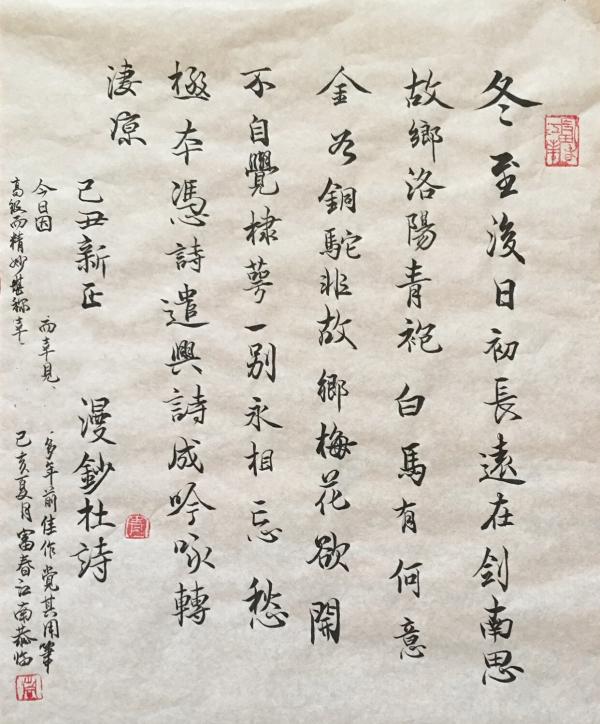 冬至後日初長遠在剑南思
故鄉洛陽青袍白馬有何意
金谷銅駝非故鄉梅花欲開
不自覺棣萼一别永相忘愁
極本憑詩遣興詩成吟咏轉
淒涼
己丑新正 漫鈔杜詩
今日因 而幸見 多年前佳作觉其用筆
高級而精妙堪称幸 己亥夏月富春江南恭临